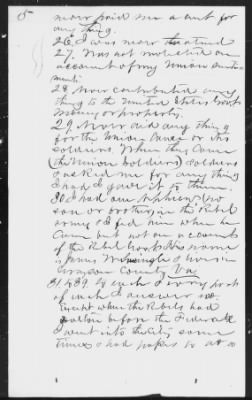 5
never paid me a cent for
any thing.
26 I was never threatened
27. Was not molested on
account of my Union senti
ments
28 Never contributed any
thing to the United States Govt
money or property.
29 Never did any thing
for the Union cause or its
soldiers. When they came
(the Union Soldiers) soldiers
asked me for any thing
I had I gave it to them.
30 I had one nephew (no
son or brother) in the Rebel
army & I fed him when he
came but not on account
of the Rebel Govt. His name
is James & lives in
Grayson County Va
31, & 39. To each & every part
of each I answer no
Except when the Rebels had
before the Federals
I went into the City some
times & had papers to